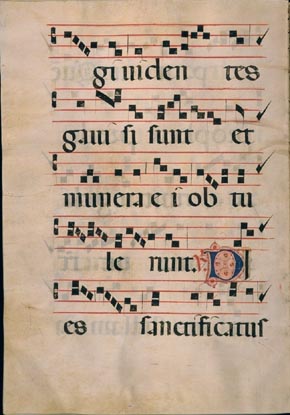 gi uiden tes
gaui si sunt et
munera e i ob tu
le runt. D
es sanctificatus